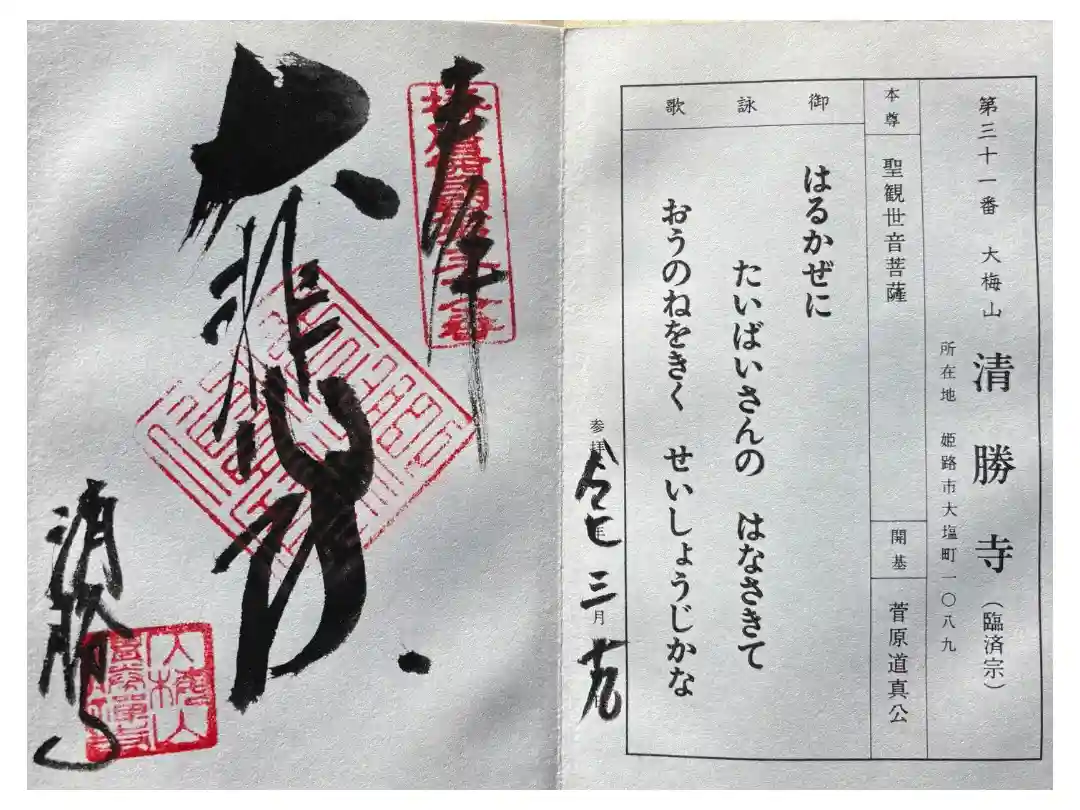 第三十一番 大梅山 清勝寺(臨済宗)
所在地 姫路市大塩町一〇八九
本尊 聖観世音菩薩
開基 菅原道真公
御詠歌
はるかぜに
たいばいさんの はなさきて
おうのねをきく せいしょうじかな
参拝 令七年 三月 十九
奉拝
大悲殿
清勝寺